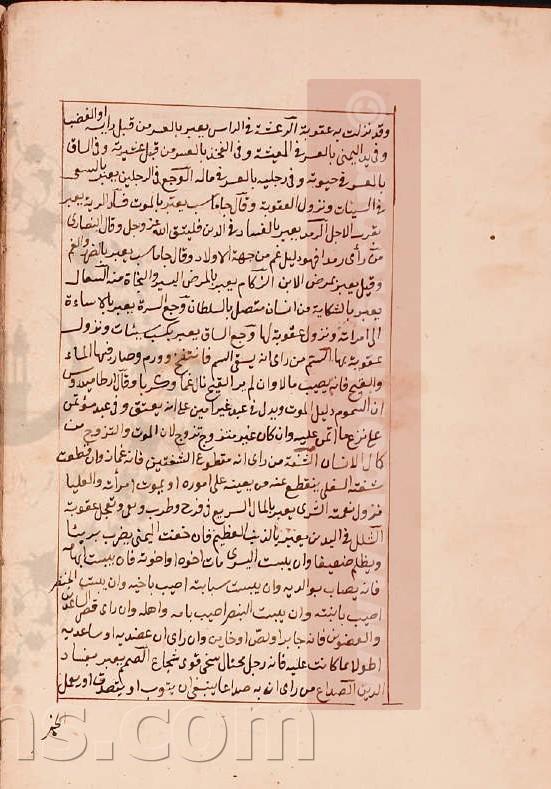 وقد نزلت به عقوبة الرعشة في الراس يعبر بالعسر من قبل رايسه او الغضب
وفي يد اليمنى بالعسر في المعيشة وفي الفخذ بالعسر من قبل عشيرته وفي الساق
بالعسر في حيوته وفي رجليه بالعسر في ماله الوجع في الرجلين يعبر بالسعي
في السيئات ونزول العقوبة وقال جاماسب يعبر بالموت فساد الرية يعبر
بقرب الاجل الرمد يعبر بالفساد في الدين فليتق الله عز وجل وقال النصارى
من رأى رمدا فهو دليل غم من جهة الاولاد وقال جاماسب يعبر بالضر والغم
وقيل يعبر بمرض الابن الزكام يعبر بالمرض اليسير والنجاة منه السعال
يعبر بالشكاية من انسان متصل بالسلطان وجع السرة يعبر بالاساءة
الى امراته ونزول عقوبة لها وجع الساق يعبر بكسب سيئات ونزول
عقوبة بها السم من راى انه سقي السم فانتفخ وورم وصار فيها الماء
والقيح فانه يصيب مالا وان لم ير القيح نال غما وكربا وقال ارطاميدورس
ان السموم دليل الموت ويدل في عبد غير امين على انه يعتق وفي عبد مؤتمن
على نزع ما ائتمن عليه وان كان غير متزوج تزوج لان الموت والتزوج من
كمال الانسان الشفة من راى انه مقطوع الشفتين فانه غماز وان قطعت
شفته السفلى ينقطع عنه من يعينه على اموره او يموت امرأته والعليا
فزول نعمته الشرى يعبر بالمال السريع في فرح وطرب وتعجل عقوبة
الشلل في اليدين يعبر بالذنب العظيم فان جفت اليمنى يضرب بريئا
ويظلم ضعيفا وان يبست اليسرى مات اخوه او اخوته فان يبست ابهامه
فانه يصاب بوالديه وان يبست سبابته اصيب باخيه وان يبست الخنصر
اصيب بابنته وان يبست البنصر اصيب بامه واهله وان راى قصر الساعدين
والعضدين فانه جاير او لص او خاين وان راى ان عضديه او ساعديه
اطول مما كانت عليه فانه رجل محتال سخي قوي شجاع الصمم يعبر بفساد
الدين الصداع من راى ان به صداعا ينبغي ان يتوب او يتصدق او يعمل
الخير
ns.com